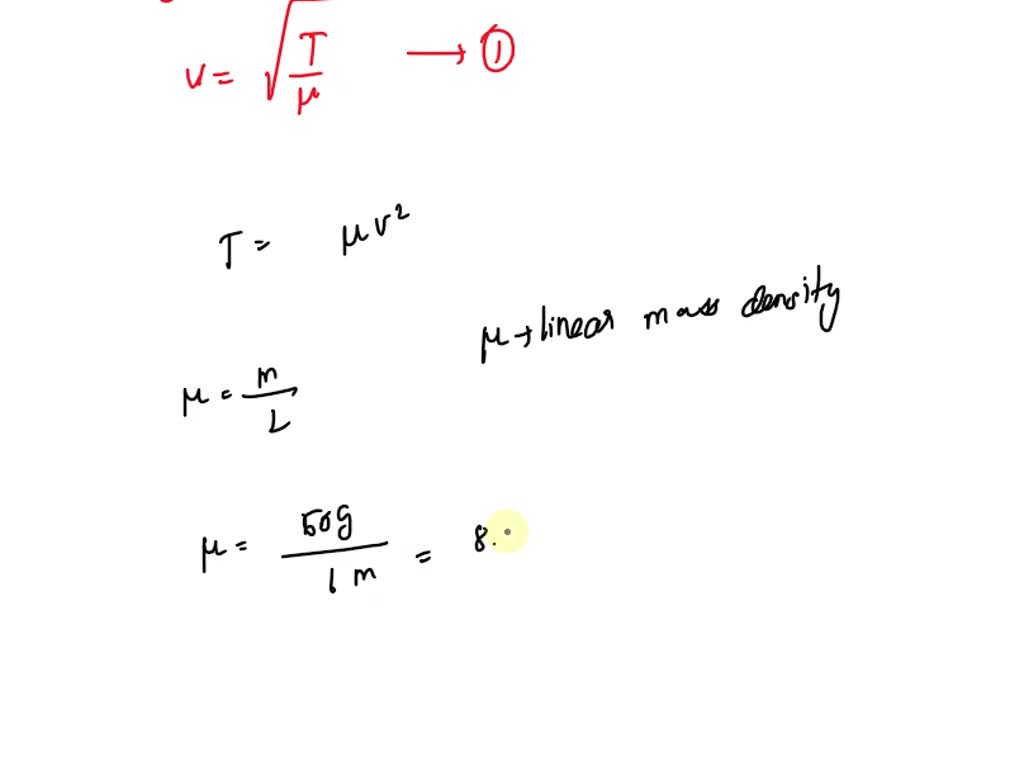 v = √(T/μ) → ①
T = μv²
μ → linear mass density
μ = m/L
μ = 50g/6 m = 8.